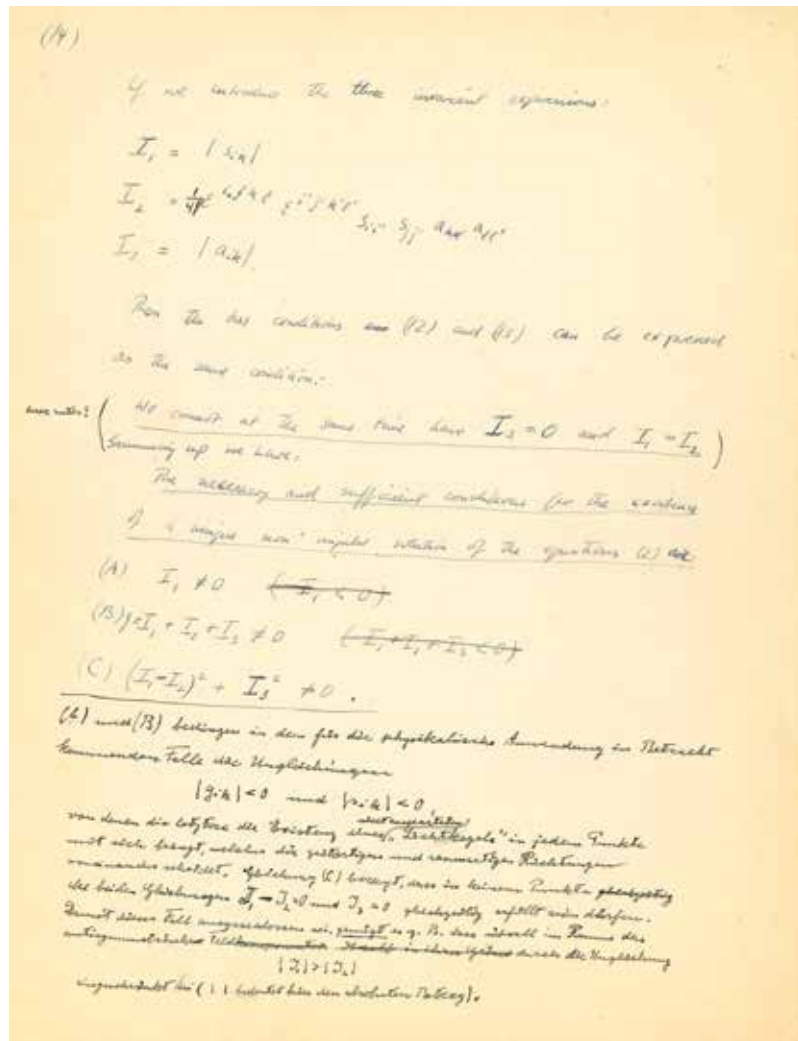 (14)
If we introduce the three invariant expressions:
I₁ = | sᵢₖ |
I₂ = 1/4
I₃ = | aᵢₖ |.
Then the two conditions (12) and (15) can be expressed
as the same condition:
We cannot at the same time have I₃ = 0 and I₁ = I₂
Summing up we have:
The necessary and sufficient conditions for the existence
of a unique non-singular solution of the equations (2) are
(A) I₁ ≠ 0 (I₁ < 0)
(B) g = I₁ + I₂ + I₃ ≠ 0 (I₁ + I₂ + I₃ < 0)
(C) (I₁ - I₂)² + I₃² ≠ 0.
(A) und (B) bedingen in dem für die physikalische Anwendung in Betracht
kommenden Falle die Ungleichungen
|gᵢₖ| < 0 und |sᵢₖ| < 0,
von denen die letztere die Existenz eines "Lichtkegels" in jedem Punkte
mit sich bringt, welcher die zeitartigen und raumartigen Richtungen
voneinander scheidet. Gleichung (C) besagt, dass in keinem Punkte gleichzeitig
die beiden Gleichungen I₁ - I₂ = 0 und I₃ = 0 gleichzeitig erfüllt sein dürfen.
Damit dieser Fall ausgeschlossen sei, genügt es z. B. dass überall im Raume das
antisymmetrische Feld durch die Ungleichung
|I₁| > |I₂|
eingeschränkt sei (| | bedeutet hier den absoluten Betrag).